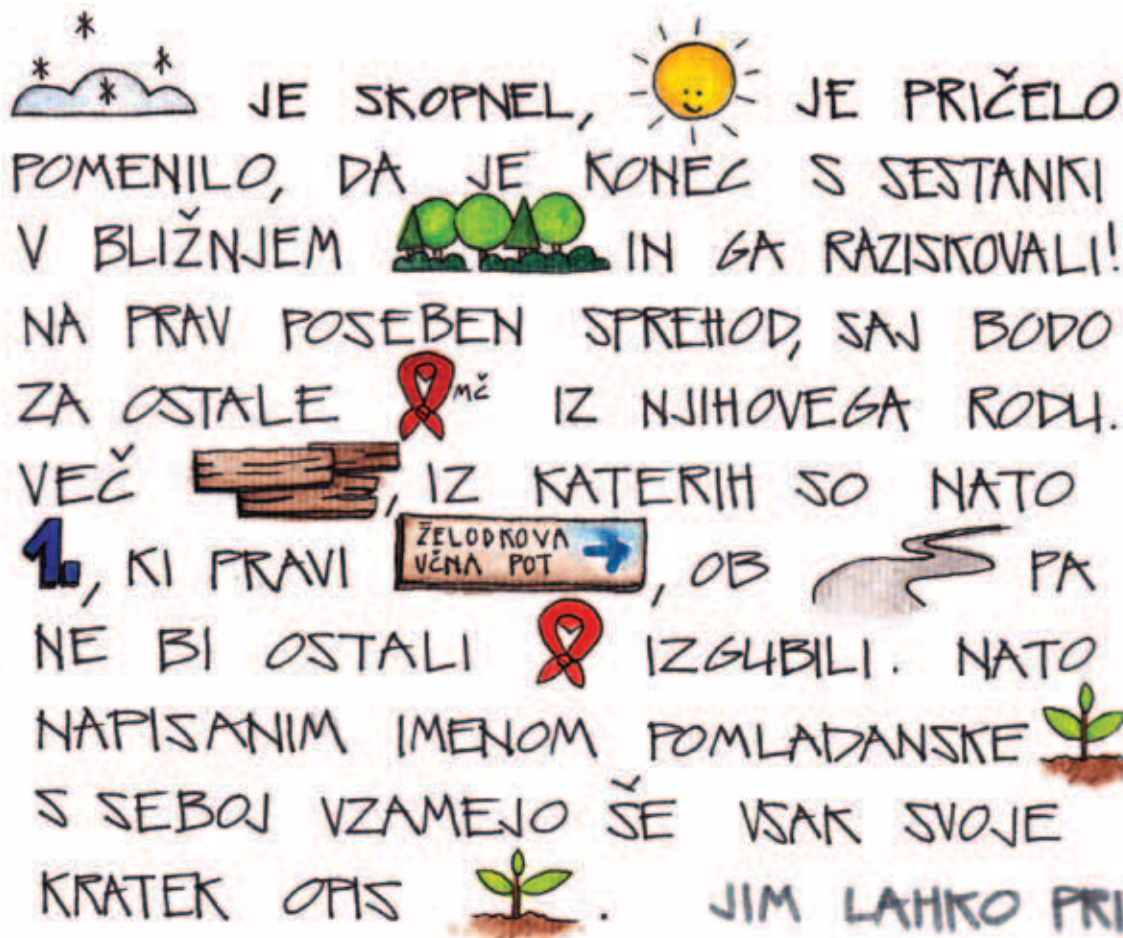 JE SKOPNEL, JE PRIČELO
POMENILO, DA JE KONEC S SESTANKI
V BLIŽNJEM IN GA RAZISKOVALI!
NA PRAV POSEBEN SPREHOD, SAJ BODO
ZA OSTALE MČ IZ NJIHOVEGA RODU.
VEČ , IZ KATERIH SO NATO
1., KI PRAVI ŽELODKOVA UČNA POT , OB PA
NE BI OSTALI IZGUBILI. NATO
NAPISANIM IMENOM POMLADANSKE
S SEBOJ VZAMEJO ŠE VSAK SVOJE
KRATEK OPIS . JIM LAHKO PRI